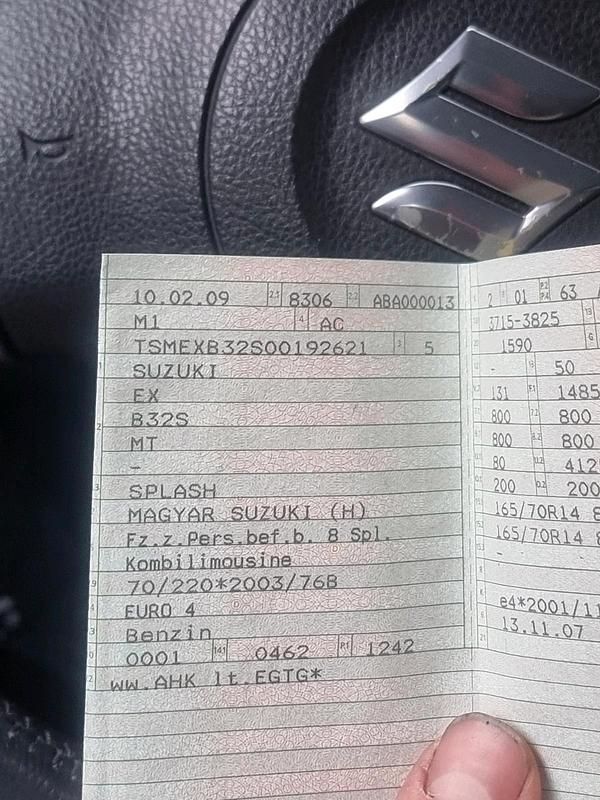 10.02.09 2.1 8306 2.2 ABA000013
M1 4 AC
TSMEXB32S00192621 3 5
SUZUKI
EX
B32S
MT
-
SPLASH
MAGYAR SUZUKI (H)
Fz.z.Pers.bef.b. 8 Spl.
Kombilimousine
70/220*2003/76B
EURO 4
Benzin
0001 14.1 0462 P.1 1242
ww.AHK lt.EGTG*
2 01 P.2 P.4 63
3715-3825
1590 G
- 50
131 1485
800 7.2 800
800 8.2 800
80 412
200 O.2 200
165/70R14 8
165/70R14 8
- -
e4*2001/11
13.11.07